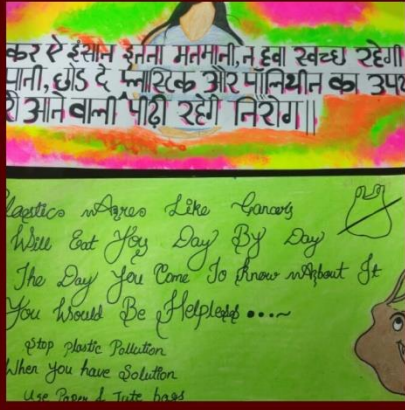 कर ऐ इंसान इतना मतमानी, न हवा स्वच्छ रहेगी
पानी, छोड दे प्लास्टिक और पॉलिथीन का उपय
री आने वाली पीढ़ी रहेगी निरोग||
Plastics Agreo Like Cancers
Will Eat You Day By Day
The Day You Come To Know About It
You Would Be Helpless ....~
Stop Plastic Pollution
When you have Solution
Use Paper & Jute bags